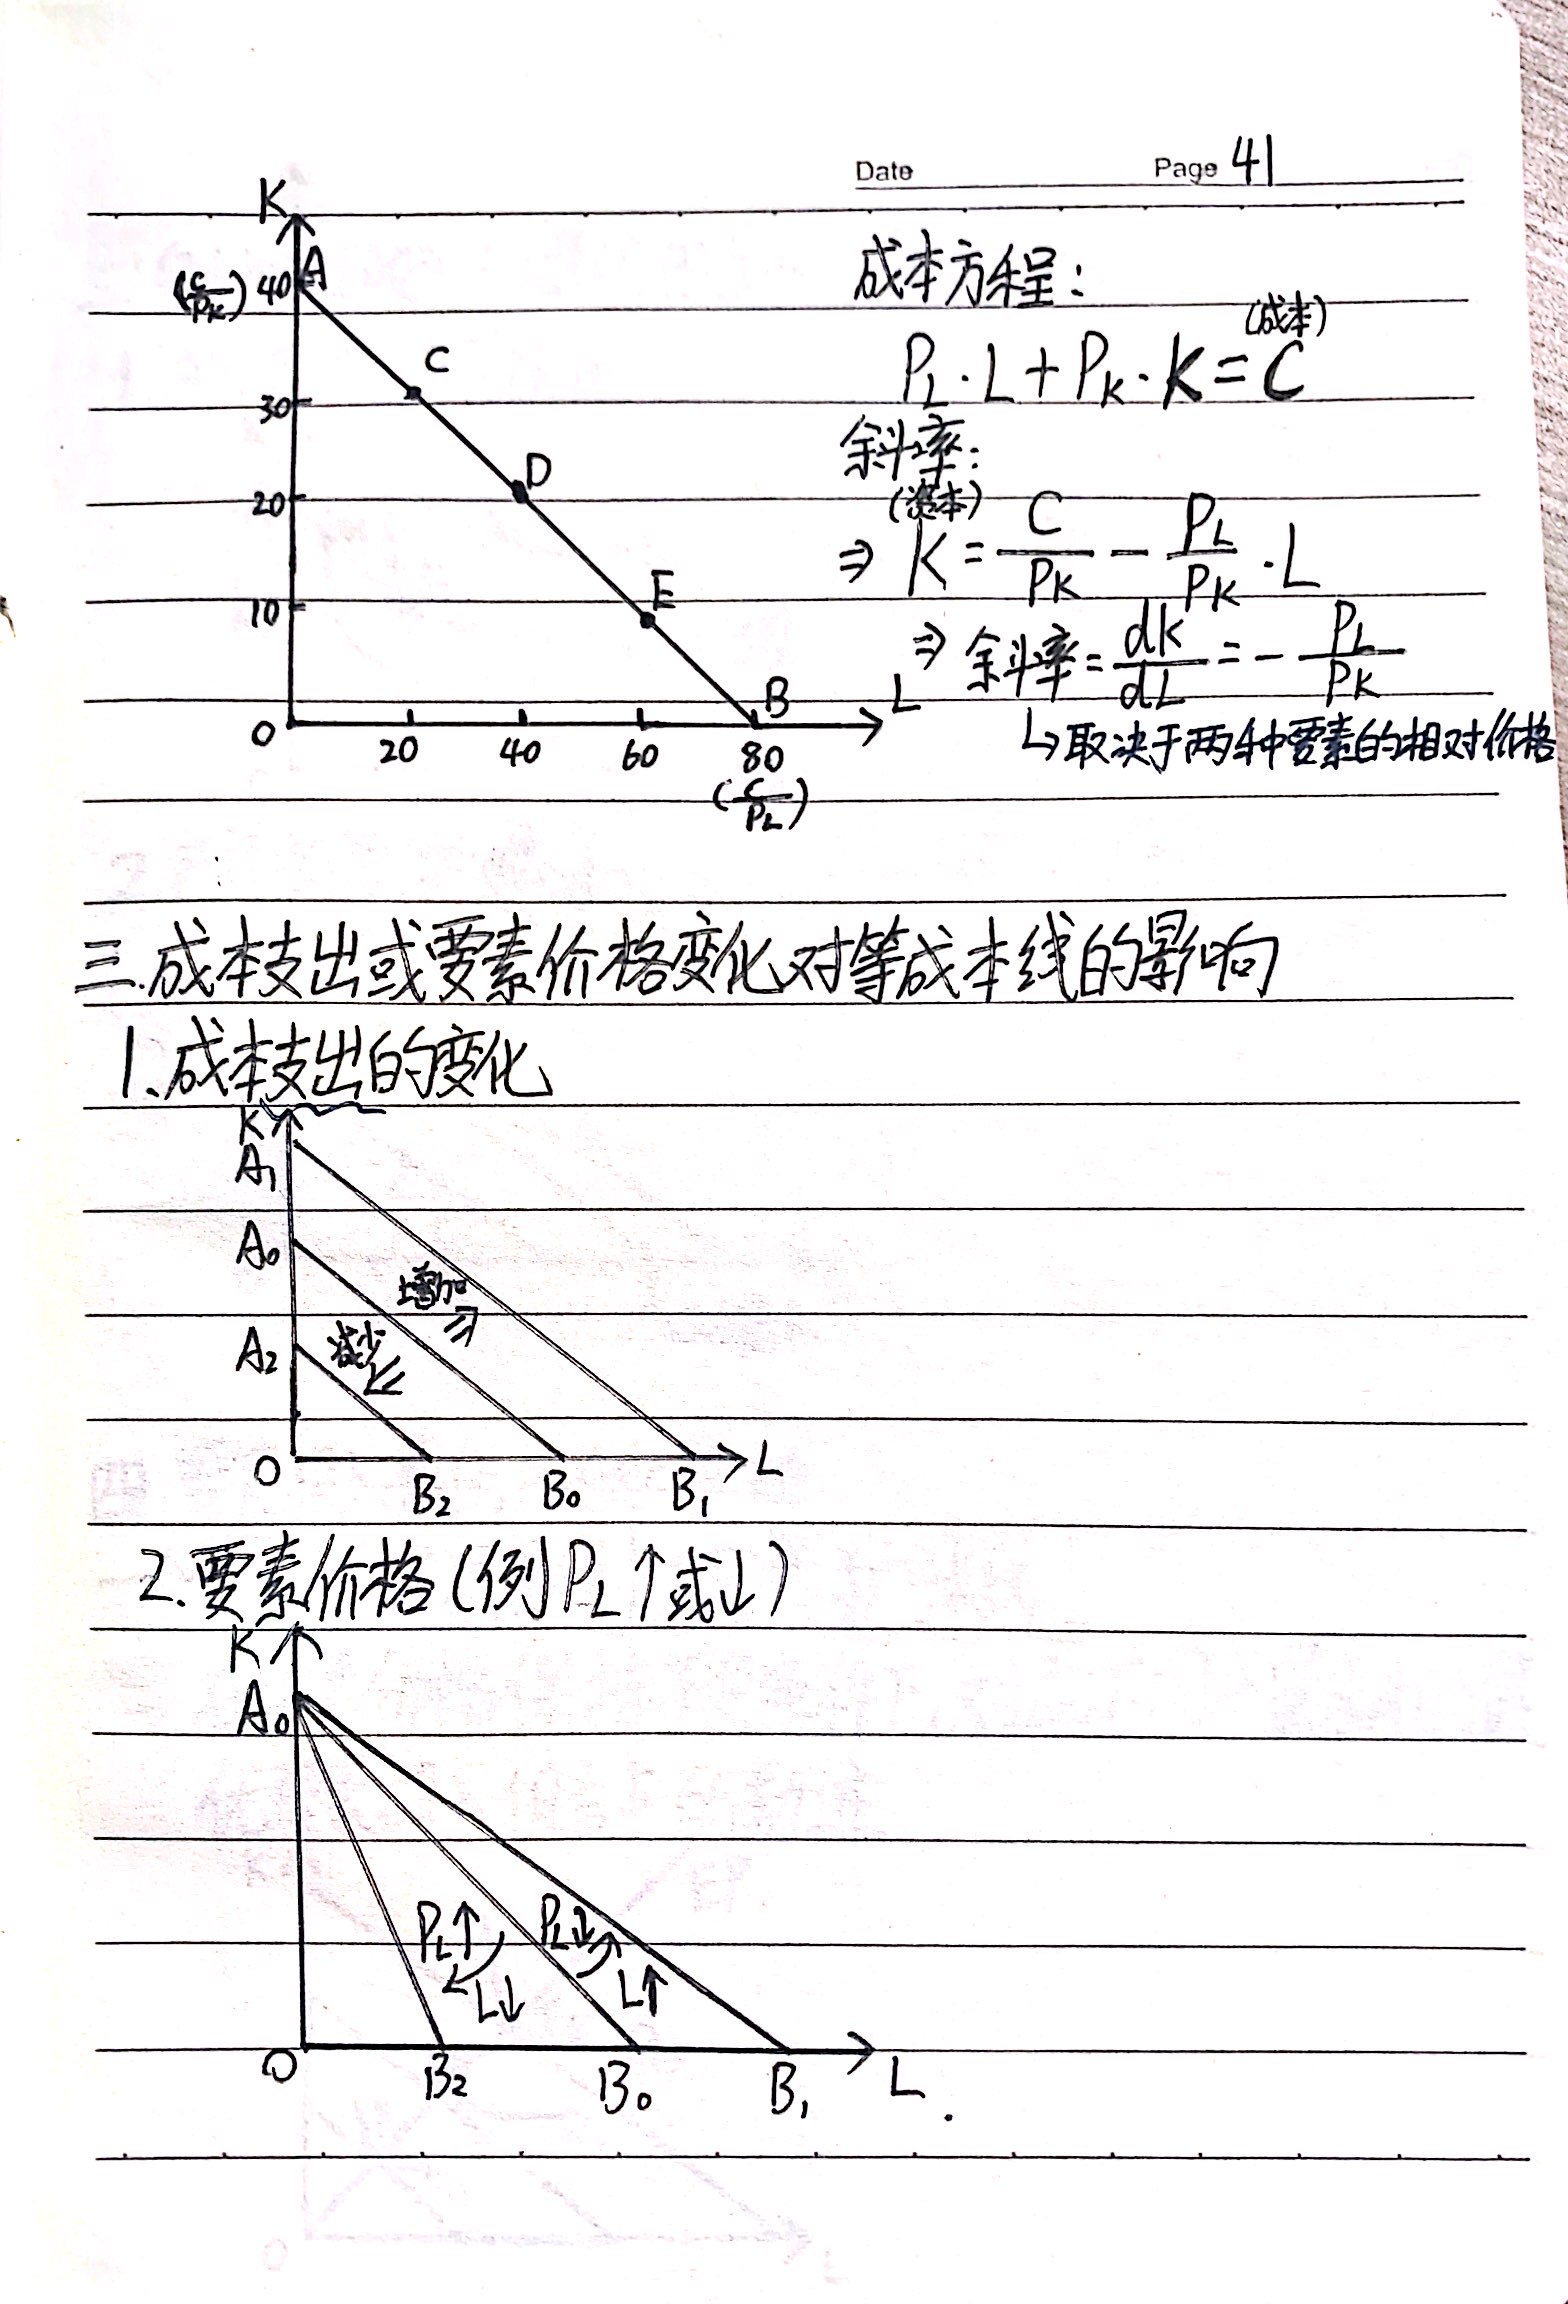 Date Page 41
K
(C/PK) 40 A
C
30
D
20
E
10
B
L
O 20 40 60 80
(C/PL)
成本方程：
(成本)
PL·L+PK·K=C
斜率：
(资本)
⇒ K = C/PK − PL/PK ·L
⇒ 斜率 = dK/dL = − PL/PK
↳取决于两种要素的相对价格
三.成本支出或要素价格变化对等成本线的影响
1.成本支出的变化
K
A1
A0
增加
A2 减少
O B2 B0 B1 L
2.要素价格(例PL↑或↓)
K
A0
PL↑ PL↓
L↓ L↑
O B2 B0 B1 L.